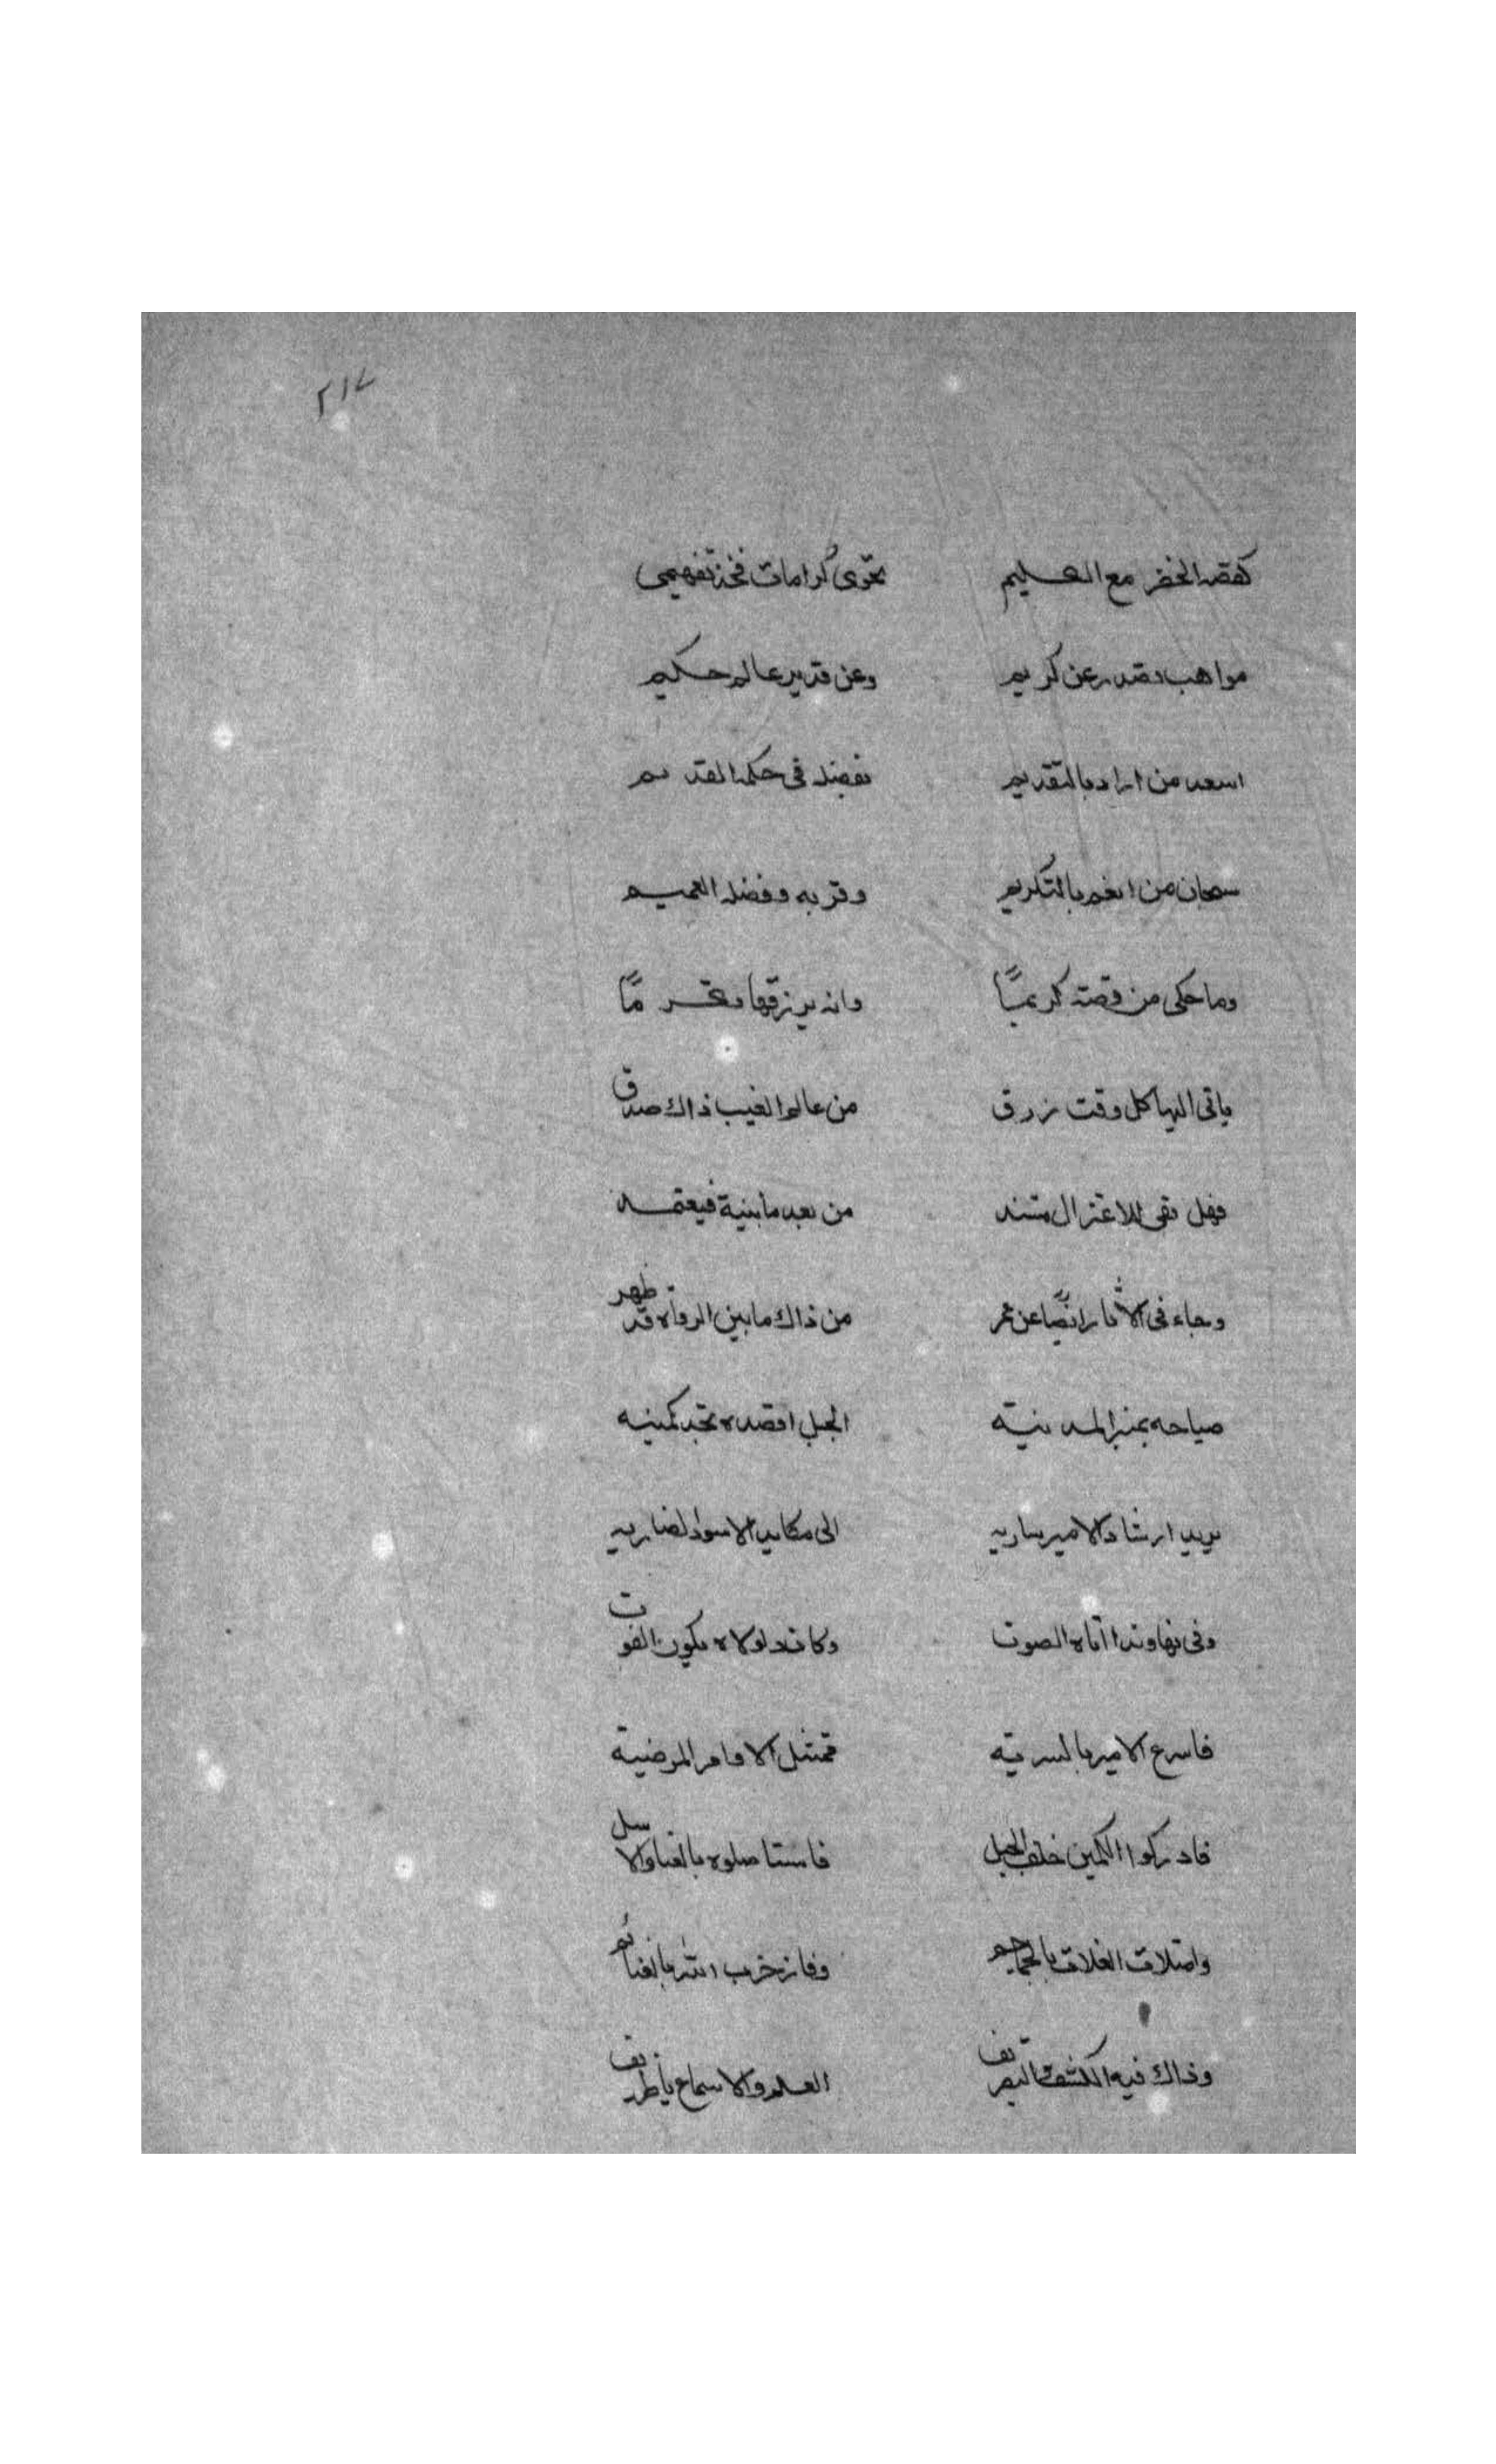 ٢١٧
كقصة الخضر مع الكليم تحوى كرامات فخذ تفهيمى
مواهب تصدر عن كريم وعن قدير عالم حكيم
اسعد من اراد بالتقديم بفضله فى حكمه القديم
سبحان من انعم بالتكريم وقربه وفضله العميم
وما حكى من قصة كريمًا وانه يرزقها
ياتى اليها كل وقت رزق من عالم الغيب ذاك صدق
فهل بقى للاعتزال مستند من بعد ما بنيه فيعتقد
وجاء فى الاثار ايضًا عن عمر من ذاك ما بين الرواة قد ظهر
صياحه بمنبر المدينه الجبل اقصده تجد كمينه
يريد ارشاد الامير ساريه الى مكايد الاسود الضاريه
وفى نهاوند اتاه الصوت وكاد لولاه يكون الفوت
فاسرع الامير بالسريه ممتثل الاوامر المرضية
فادركوا الكمين خلف الجبل فاستاصلوه بالقنا والاسل
وامتلات الفلات بالجماجم وفاز حزب الله بالغنائم
وذاك فيه الكشف والتصريف العلم والاسماع يا ظريف